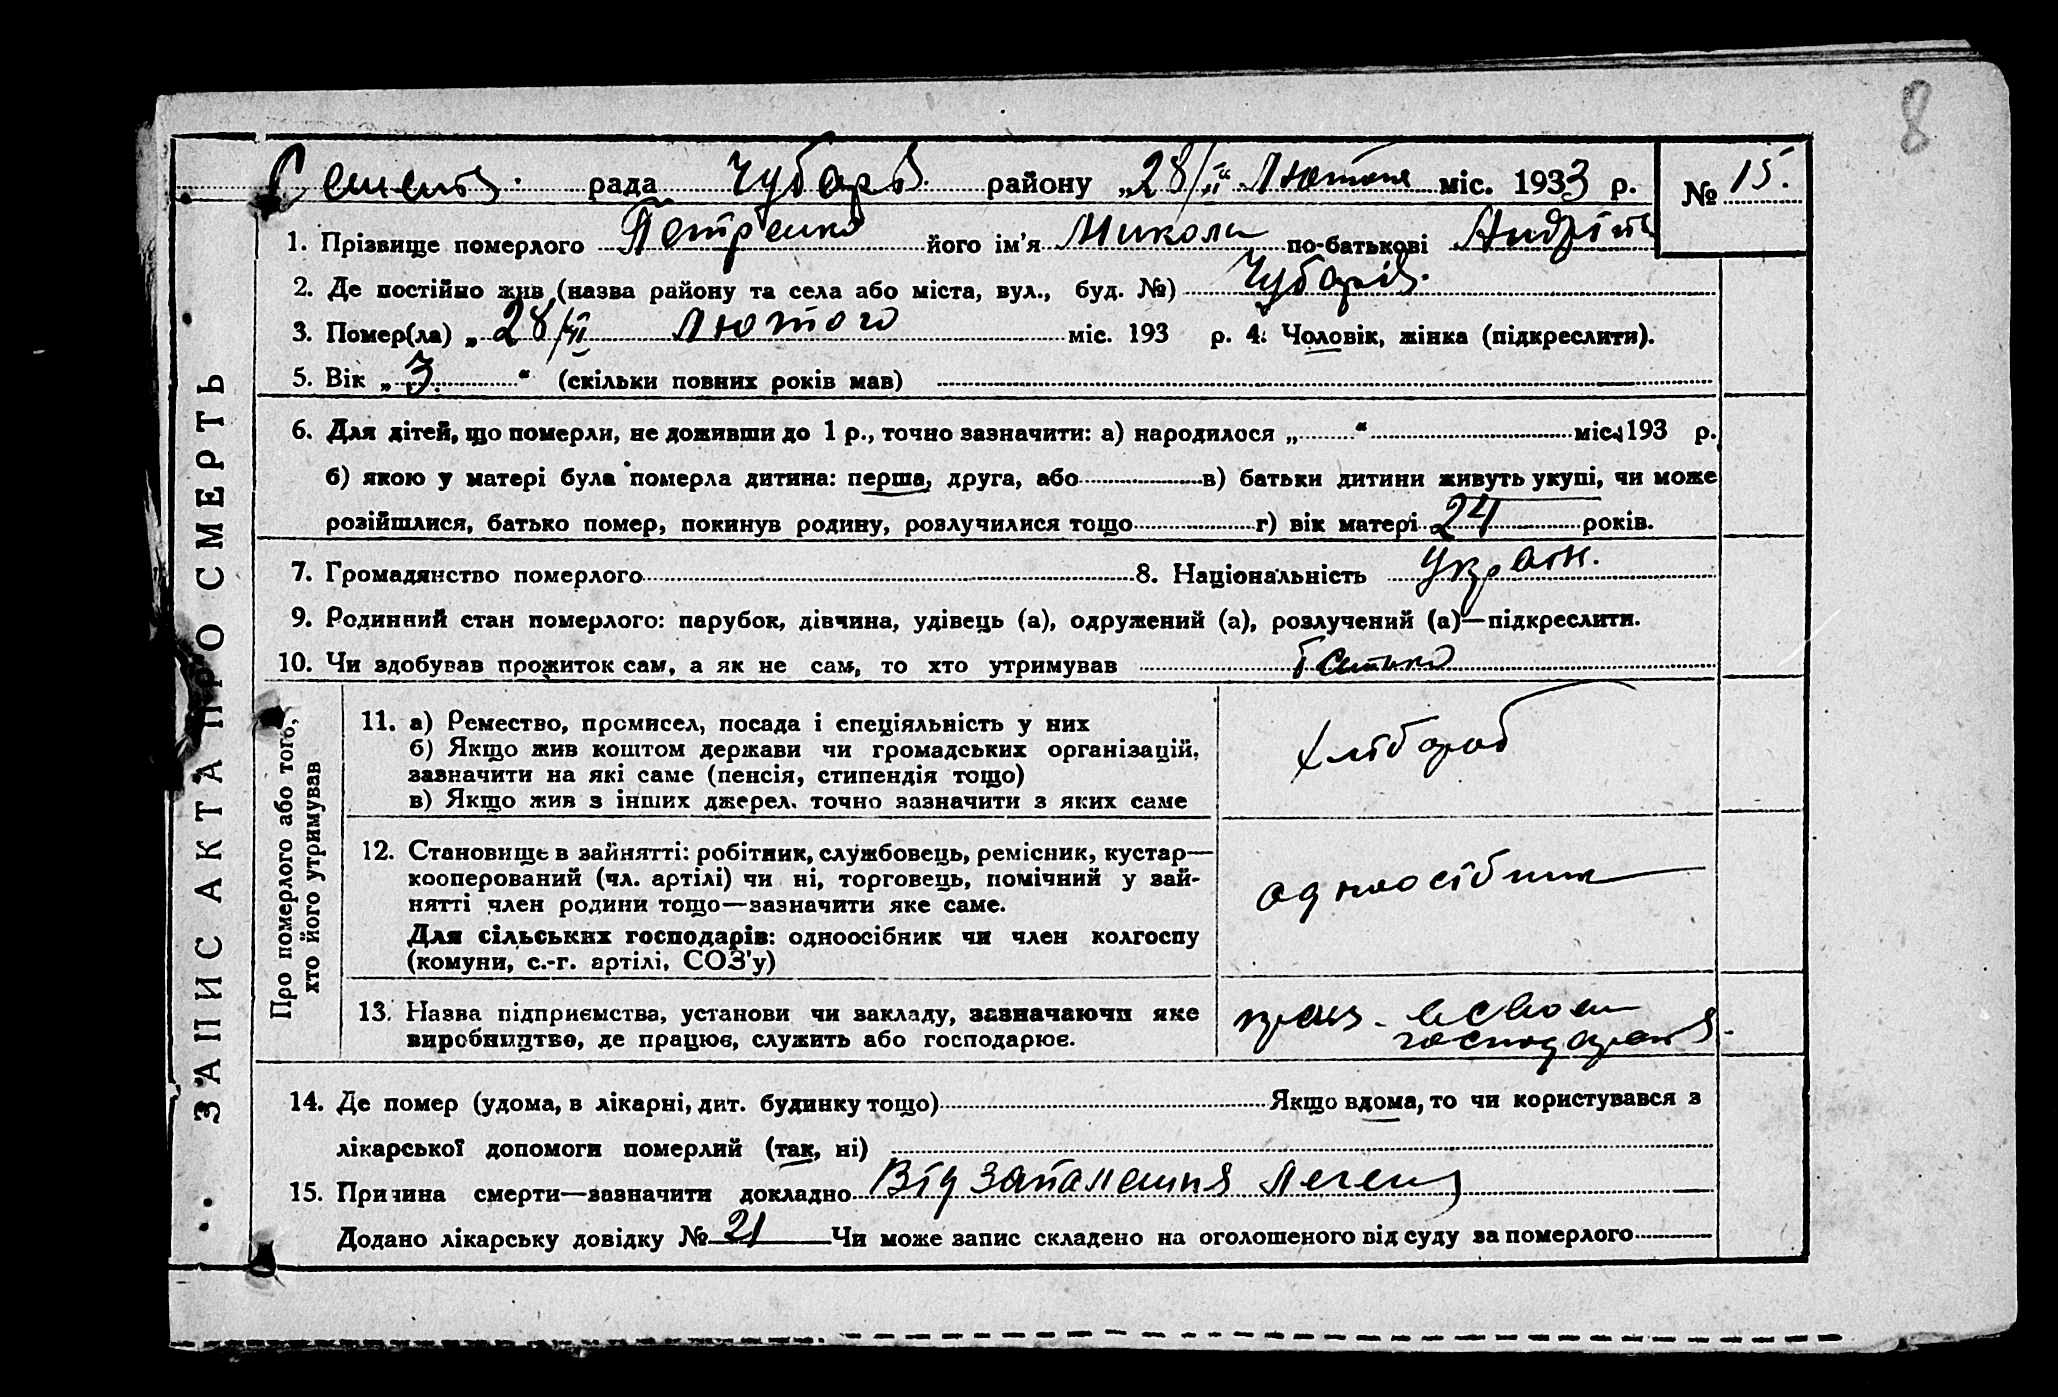 8
рада Чубарів району „28/ІІ“ Лютого міс. 1933 р. № 15.
1. Прізвище померлого Петренко його ім'я Микола по-батькові Андрій
2. Де постійно жив (назва району та села або міста, вул., буд. №) Чубарів.
3. Помер(ла) „28/ІІ Лютого міс. 193 р. 4. Чоловік, жінка (підкреслити).
5. Вік „ 3. “ (скільки повних років мав)
6. Для дітей, що померли, не доживши до 1 р., точно зазначити: а) народилося „ “ міс. 193 р.
б) якою у матері була померла дитина: перша, друга, або в) батьки дитини живуть укупі, чи може
розійшлися, батько помер, покинув родину, розлучилися тощо г) вік матері 24 років.
7. Громадянство померлого 8. Національність Україн.
9. Родинний стан померлого: парубок, дівчина, удівець (а), одружений (а), розлучений (а)—підкреслити.
10. Чи здобував прожиток сам, а як не сам, то хто утримував батько
ЗАПИС АКТА ПРО СМЕРТЬ
Про померлого або того,
хто його утримував
11. а) Ремество, промисел, посада і спеціяльність у них
б) Якщо жив коштом держави чи громадських організацій,
зазначити на які саме (пенсія, стипендія тощо)
в) Якщо жив з інших джерел, точно зазначити з яких саме
хлібороб
12. Становище в зайнятті: робітник, службовець, ремісник, кустар—
кооперований (чл. артілі) чи ні, торговець, помічний у зай-
нятті член родини тощо—зазначити яке саме.
Для сільських господарів: одноосібник чи член колгоспу
(комуни, с.-г. артілі, СОЗ'у)
одноосібник
13. Назва підприємства, установи чи закладу, зазначаючи яке
виробництво, де працює, служить або господарює.
прац. в своєм
господарств.
14. Де помер (удома, в лікарні, дит. будинку тощо) Якщо вдома, то чи користувався з
лікарської допомоги померлий (так, ні)
15. Причина смерти—зазначити докладно Від запалення легень
Додано лікарську довідку № 21 Чи може запис складено на оголошеного від суду за померлого